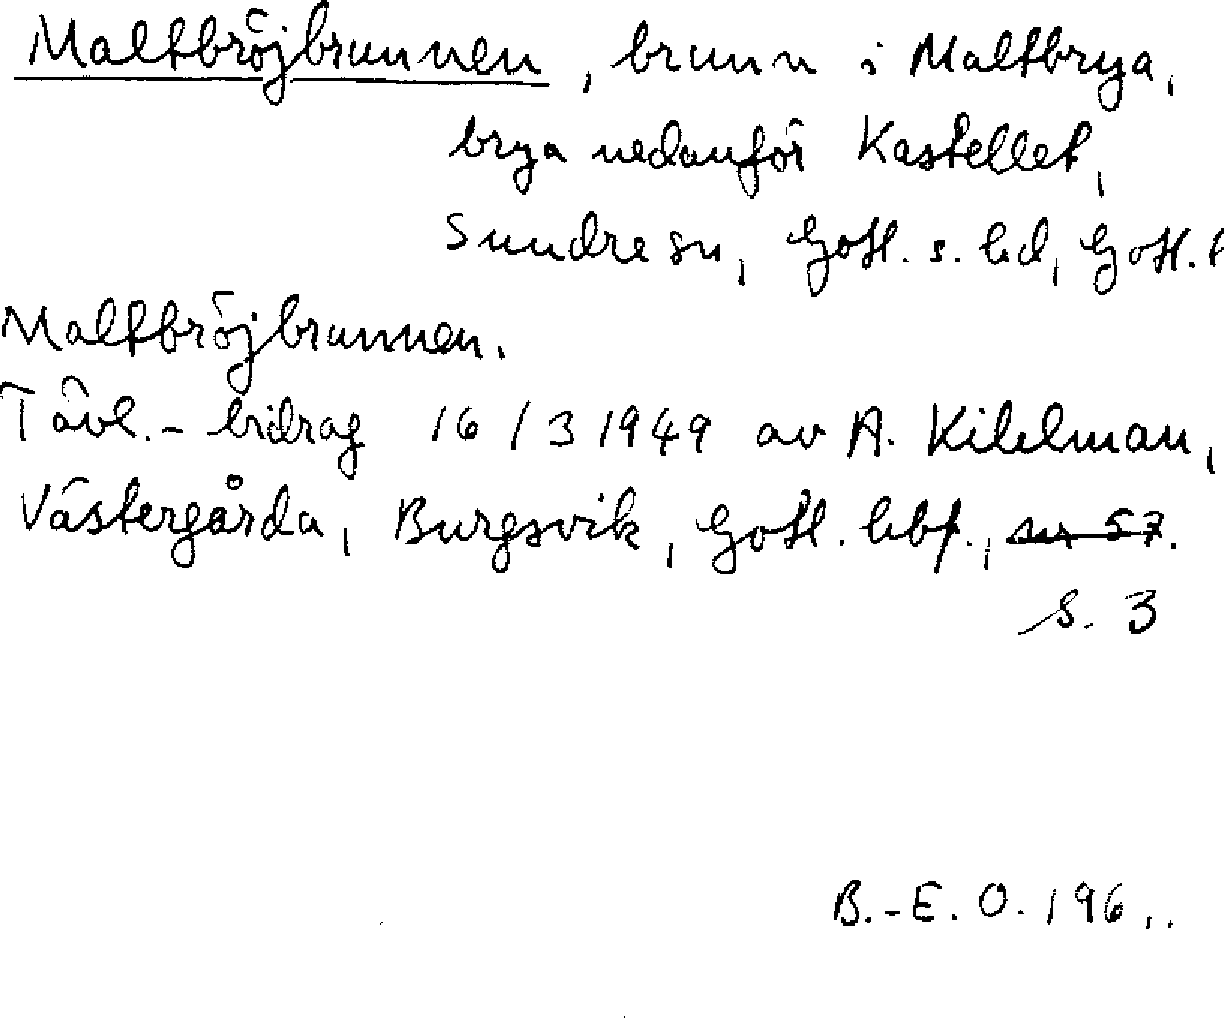 Maltbröjbrunnen, brunn i Maltbrya,
brya nedanför Kastellet,
Sundre sn, Gotl. s. hd, Gotl. l
Maltbröjbrunnen.
Tävl.-bidrag 16/3 1949 av A. Kihlman,
Västergårda, Burgsvik, Gotl. hbf.,
s. 3
B.-E. O. 196..